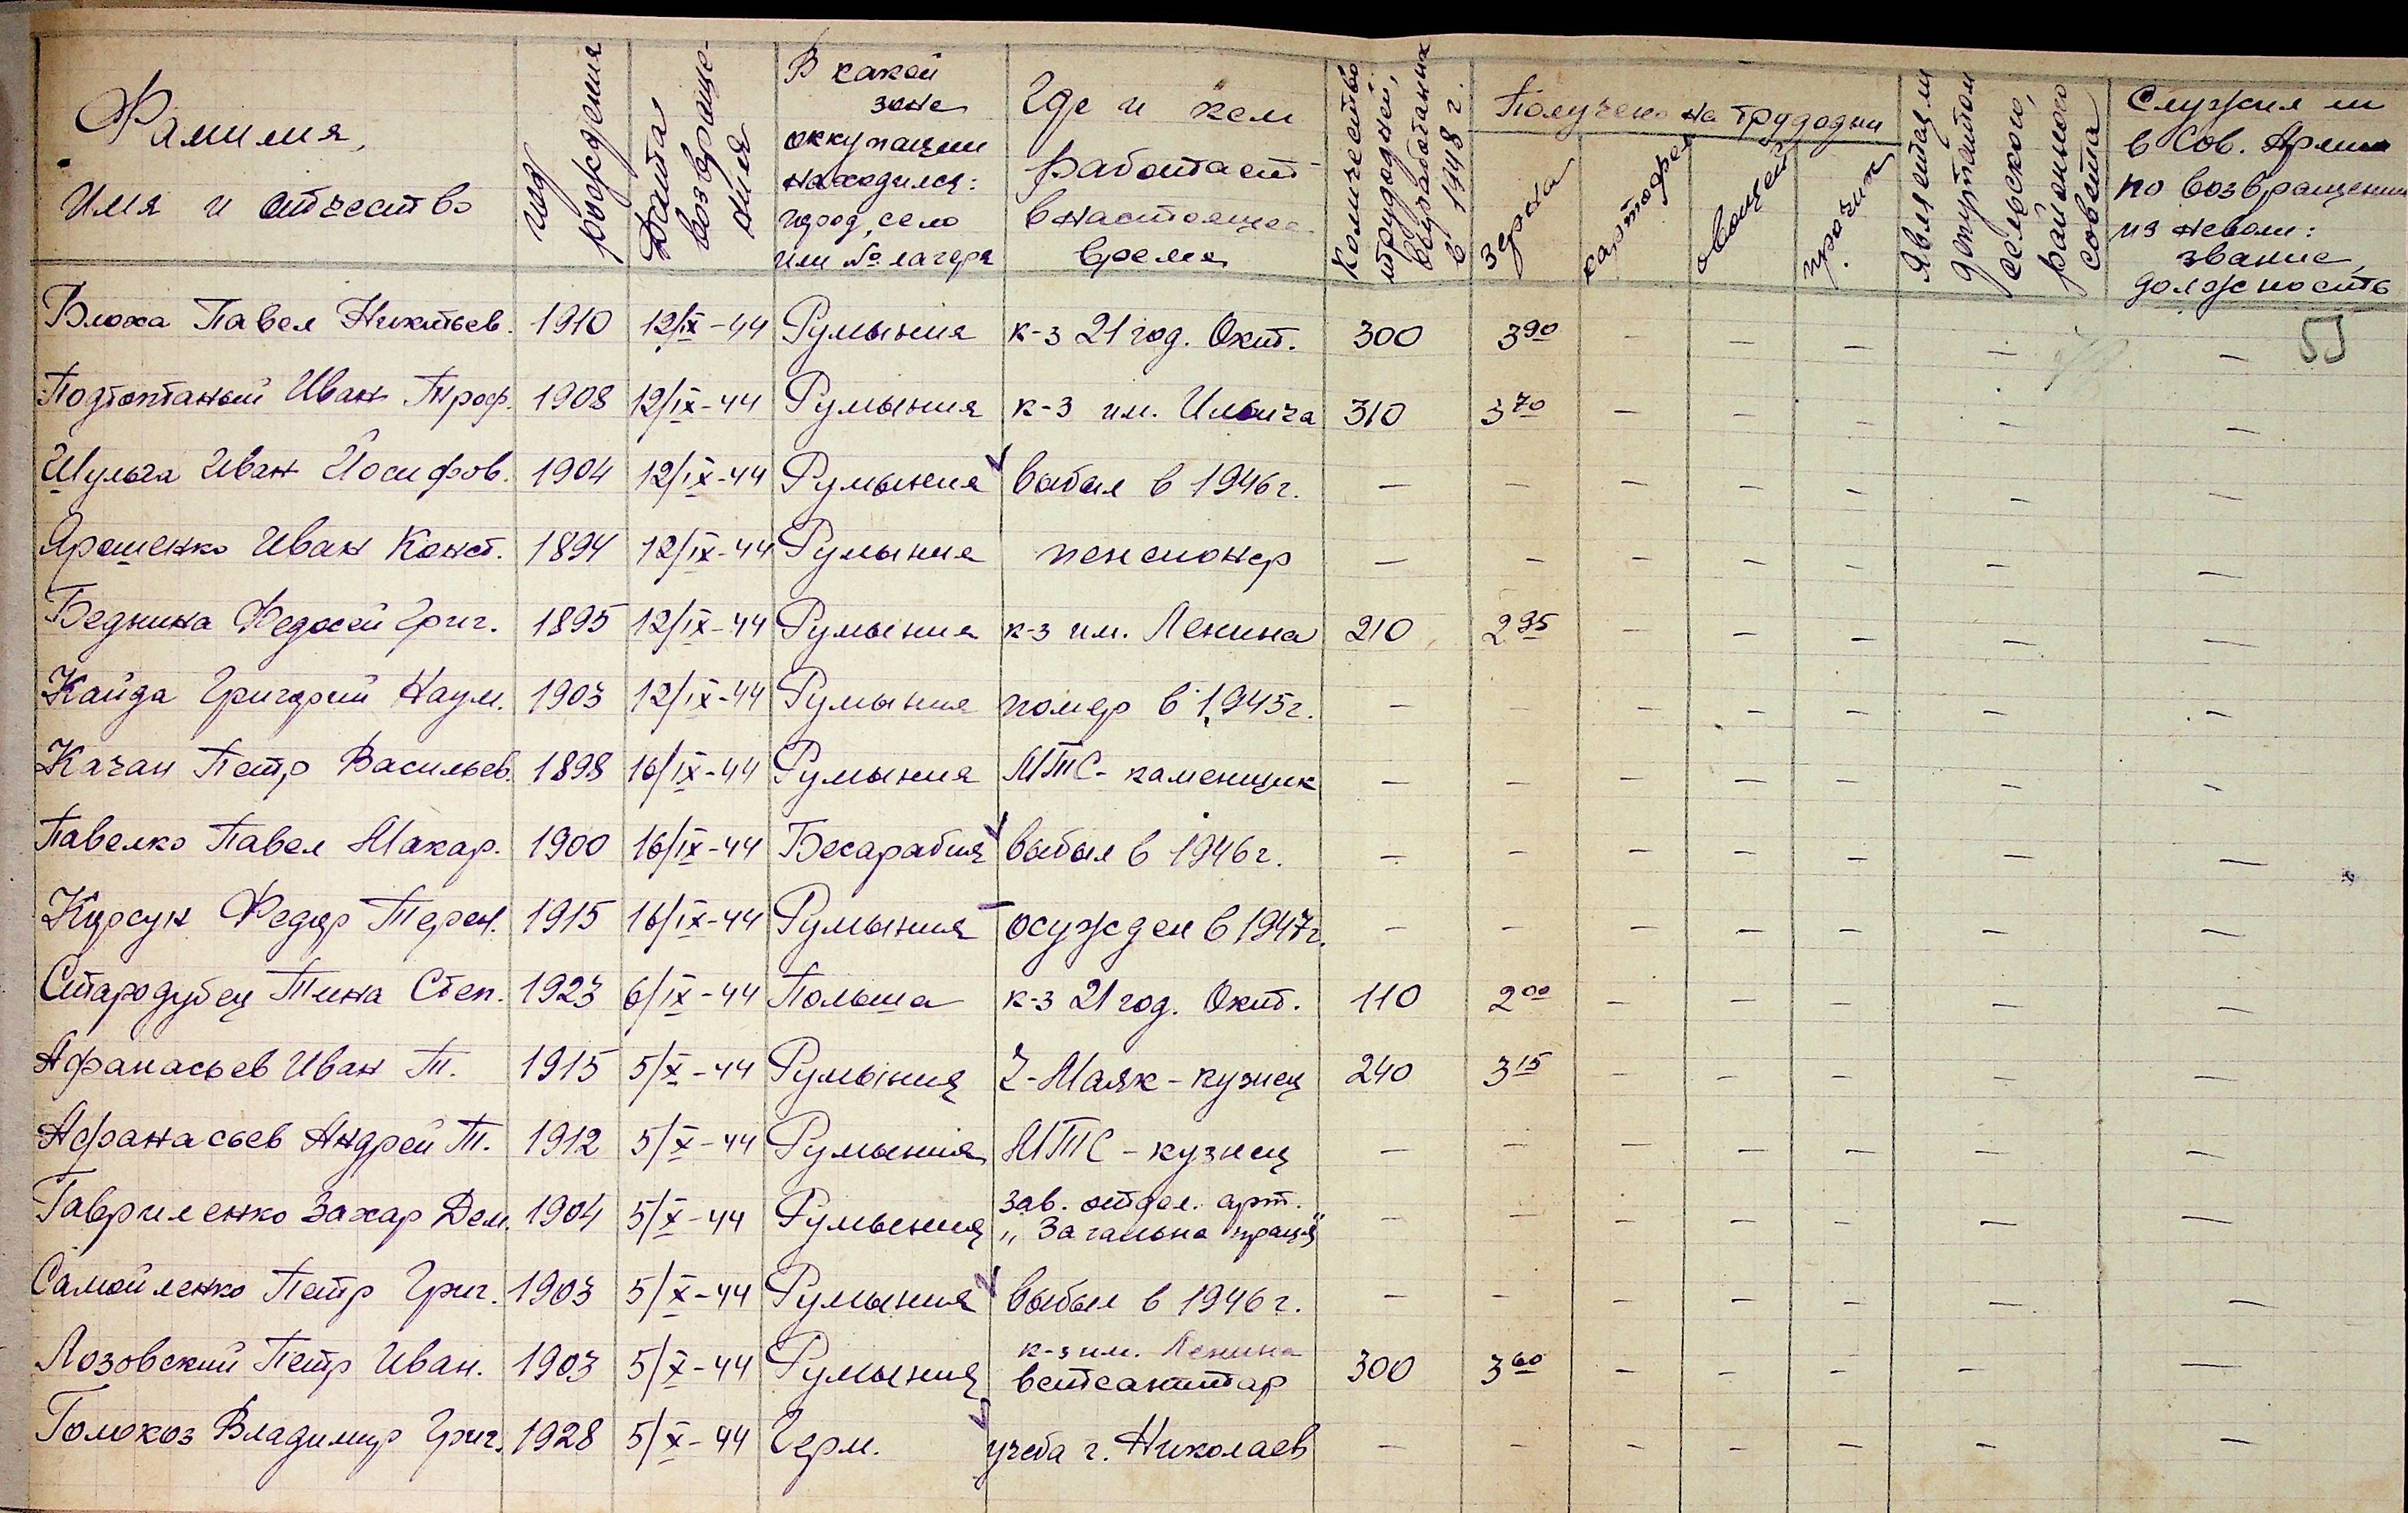 Фамилия,
Имя и отчество
год рождения
Дата возвраще-
ния
В какой
зоне
оккупации
находился:
город, село
или № лагеря
Где и кем
работает
в настоящее
время
Количество
трудодней,
выработанных
в 1948 г.
Получено на трудодни
зерна
картофел
овощей
прочих
Является ли
депутатом
сельского,
районного
совета
Служил ли
в Сов. Армии
по возвращении
из неволи:
звание,
должность
55
Блоха Павел Никитьев. 1910 12/IX-44 Румыния к-з 21 год. Окт. 300 3 90 - - - - -
Подтоптаный Иван Троф. 1908 12/IX-44 Румыния к-з им. Ильича 310 3 70 - - - - -
Шульга Иван Йосифов. 1904 12/IX-44 Румыния выбыл в 1946 г. - - - - - - -
Ярошенко Иван Конст. 1894 12/IX-44 Румыния пенсионер - - - - - - -
Беднина Федосей Григ. 1895 12/IX-44 Румыния к-з им. Ленина 210 2 95 - - - - -
Кайда Григорий Наум. 1903 12/IX-44 Румыния помер в 1945 г. - - - - - - -
Качан Петр Васильев. 1898 16/IX-44 Румыния МТС - каменщик - - - - - - -
Павелко Павел Макар. 1900 16/IX-44 Бесарабия выбыл в 1946 г. - - - - - - -
Курсун Федор Терен. 1915 16/IX-44 Румыния осужден в 1947 г. - - - - - - -
Стародубец Тина Степ. 1923 6/IX-44 Польша к-з 21 год. Окт. 110 2 00 - - - - -
Афанасьев Иван Т. 1915 5/X-44 Румыния Маяк - кузнец 240 3 15 - - - - -
Афанасьев Андрей Т. 1912 5/X-44 Румыния МТС - кузнец - - - - - - -
Гавриленко Захар Дем. 1904 5/X-44 Румыния зав. отдел. арт.
„Загальна праця" - - - - - - -
Самойленко Петр Григ. 1903 5/X-44 Румыния выбыл в 1946 г. - - - - - - -
Лозовский Петр Иван. 1903 5/X-44 Румыния к-з им. Ленина
ветсанитар 300 3 60 - - - - -
Голокоз Владимир Григ. 1928 5/X-44 Герм. учеба г. Николаев - - - - - - -